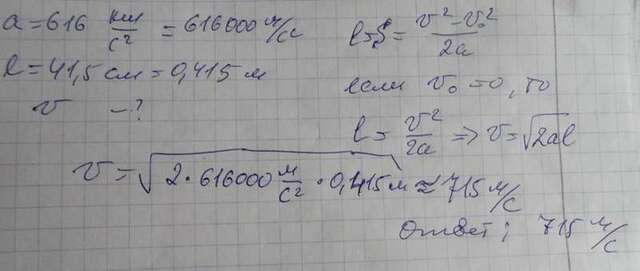 a = 616 км/с² = 616000 м/с
l = 41,5 см = 0,415 м
v - ?
l = S = (v² - v₀²)/2a
если v₀ = 0, то
l = v²/2a => v = √2al
v = √2 · 616000 м/с² · 0,415 м ≈ 715 м/с
Ответ: 715 м/с